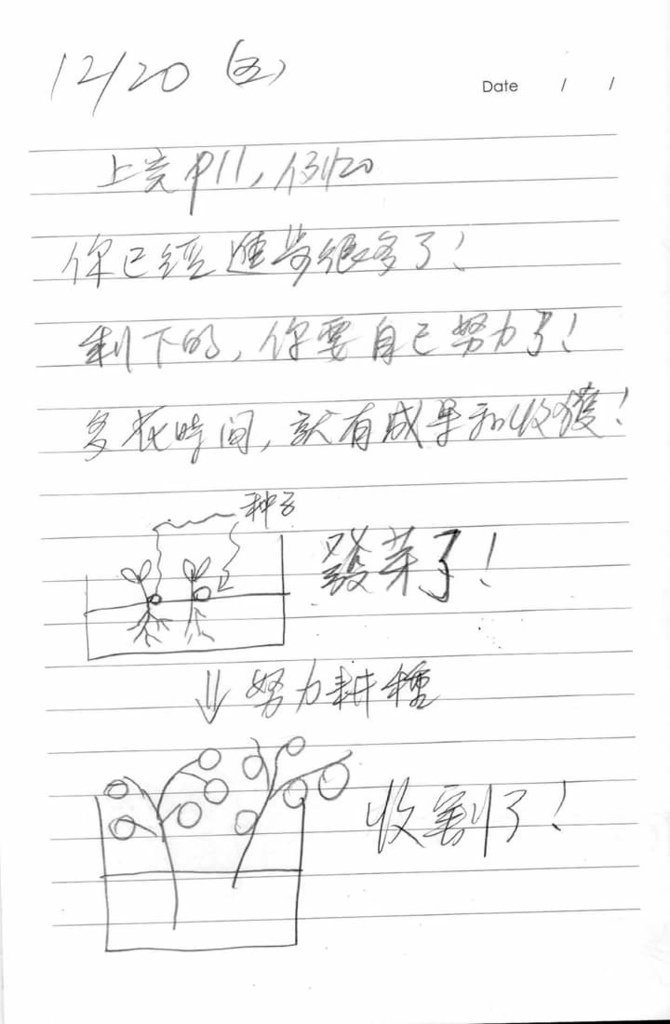 12/20 (五)
Date / /
上完P11,例20
你已經進步很多了!
剩下的,你要自己努力了!
多花時間,就有成果和收獲!
种子
發芽了!
努力耕種
收割了!